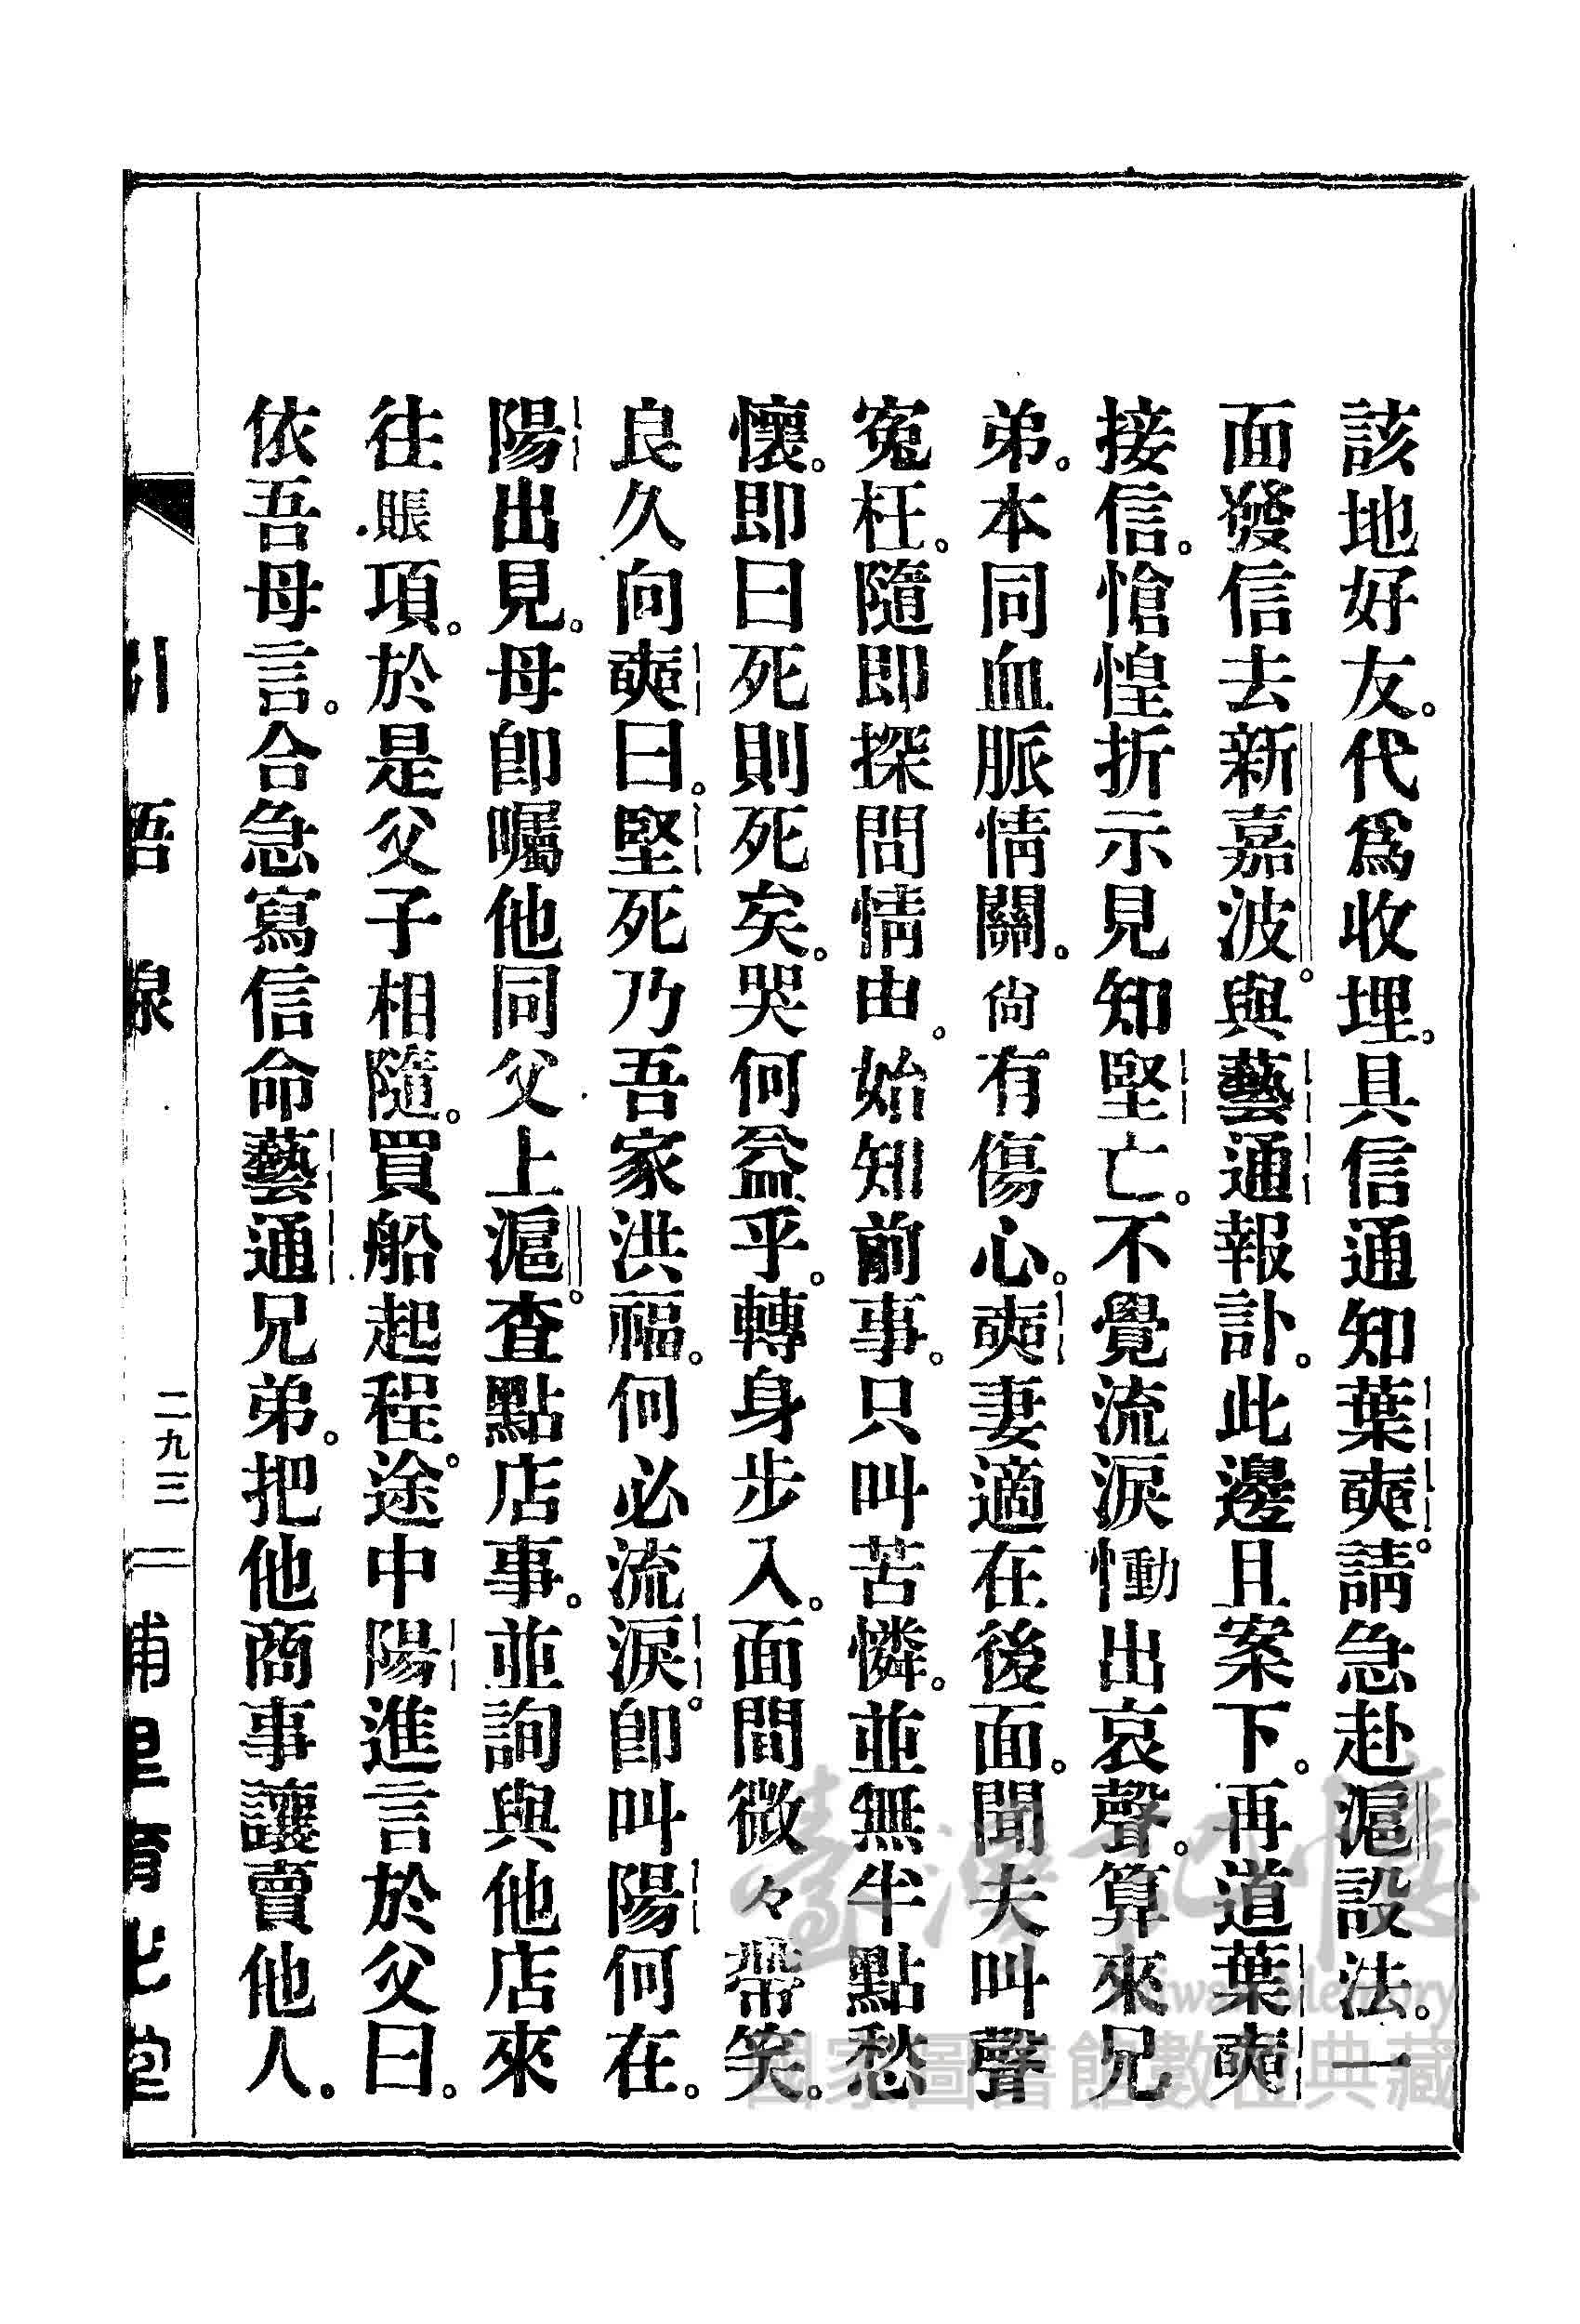 該地好友。代爲收埋。具信通知葉奭。請急赴滬設法。一
面發信去新嘉波。與藝通報訃。此邊且案下。再道葉奭
接信。愴惶折示見知堅亡。不覺流淚慟出哀聲。算來兄
弟。本同血脈情關。尙有傷心。奭妻適在後面。聞夫叫聲
寃枉。隨即探問情由。始知前事。只叫苦憐。並無半點愁
懷。即曰死則死矣。哭何益乎。轉身步入。面間微々帶笑。
良久向奭曰。堅死乃吾家洪福。何必流淚。卽叫陽何在。
陽出見。母卽囑他同父上滬。查點店事。並詢與他店來
往賬項。於是父子相隨。買船起程。途中陽進言於父曰。
依吾母言。合急寫信命藝通兄弟。把他商事讓賣他人。
引悟線
二九三
埔里育化堂
臺灣記憶
Taiwan Memory
國家圖書館數位典藏